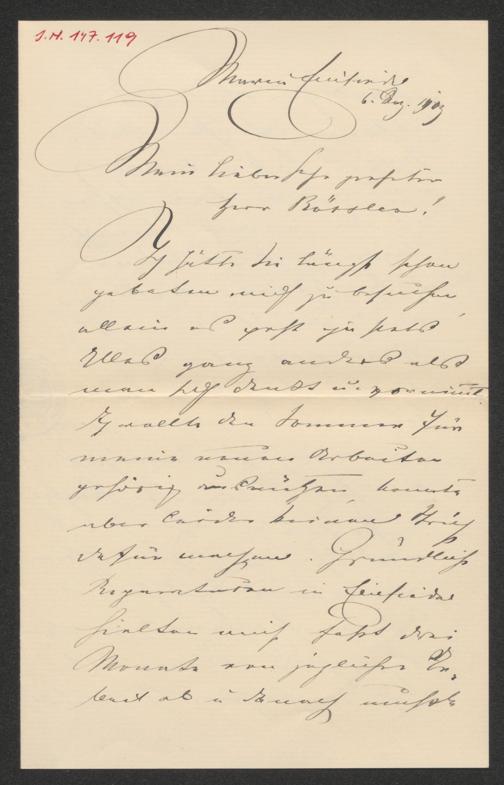 I.N. 147.119
Maria Einsiedel
6. Dez. 1903
Mein lieber sehr geehrter
Herr Rössler!
Ich hätte Sie längst schon
gebeten mich zu besuchen,
allein es geht ja stets
Alles ganz anders als
man sich denkt u. vornimmt
Ich wollte den Sommer für
meine neuen Arbeiten
gehörig ausnützen, konnte
aber leider keinen Strich
dafür machen. Gründliche
Reparaturen in Einsiedel
hielten mich fast drei
Monate von jeglicher Ar-
beit ab u danach musste